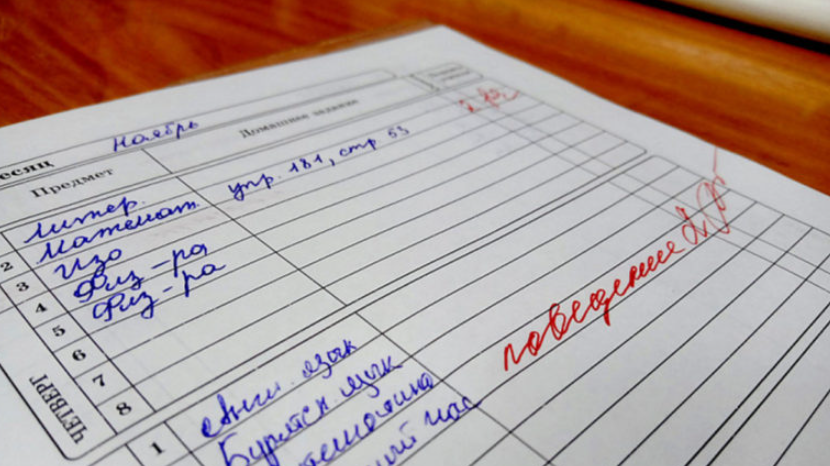 месяц ноябрь
Предмет Домашнее задание
литер.
2 Математ. упр. 181, стр 53
3 Изо
4 Физ-ра
5 Физ-ра
6
7
8
ЧЕТВЕРГ
поведение 2
1 Англ. язык
Бурятск язык